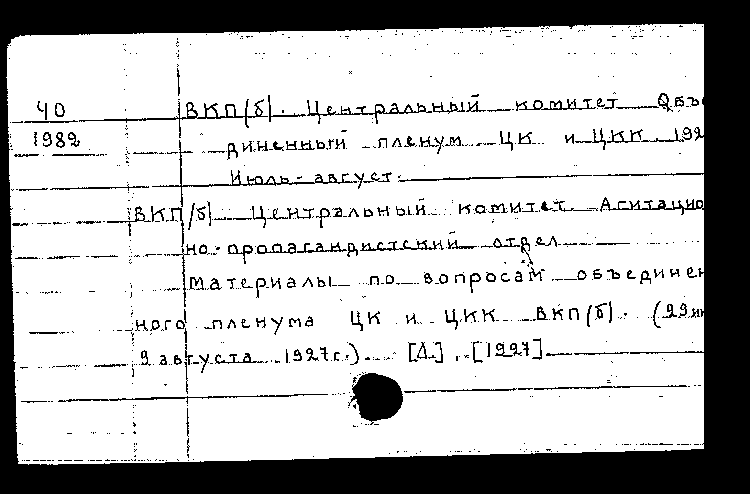 40
ВКП/б/. Центральный комитет Объе
1982
диненный пленум ЦК и ЦКК. 192
Июль-август.
ВКП/б/ Центральный комитет. Агитацио
но-пропагандистский отдел
Материалы по вопросам объединен
ного пленума ЦК и ЦКК ВКП/б/. (29 ию
9 августа 1927г.). [Л.], [1927].